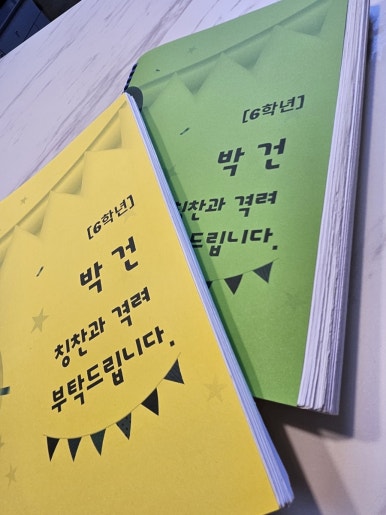 [6학년]
박 건
칭찬과 격려
부탁드립니다.
[6학년]
박 건
칭찬과 격려
드립니다.